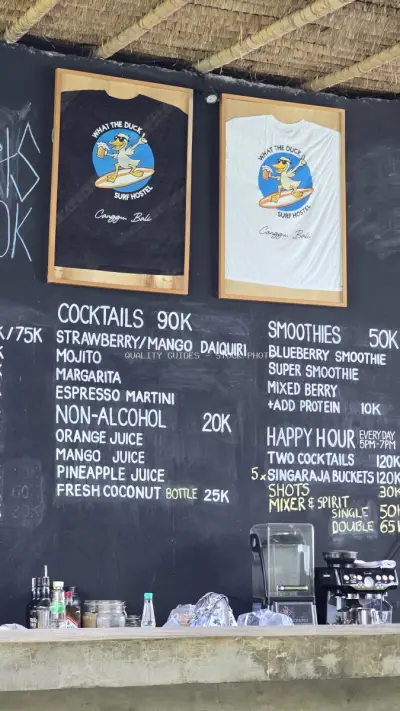 WHAT THE DUCK
SURF HOSTEL
Canggu Bali
WHAT THE DUCK
SURF HOSTEL
Canggu Bali
OK
K/75K
COCKTAILS 90K
STRAWBERRY/MANGO DAIQUIRI
MOJITO
MARGARITA
ESPRESSO MARTINI
NON-ALCOHOL 20K
ORANGE JUICE
MANGO JUICE
PINEAPPLE JUICE
FRESH COCONUT BOTTLE 25K
SMOOTHIES 50K
BLUEBERRY SMOOTHIE
SUPER SMOOTHIE
MIXED BERRY
+ADD PROTEIN 10K
HAPPY HOUR EVERYDAY
5PM-7PM
TWO COCKTAILS 120K
5x SINGARAJA BUCKETS 120K
SHOTS 30K
MIXER & SPIRIT
SINGLE 50K
DOUBLE 65K
QUALITY GUIDES - STOCK PHOT